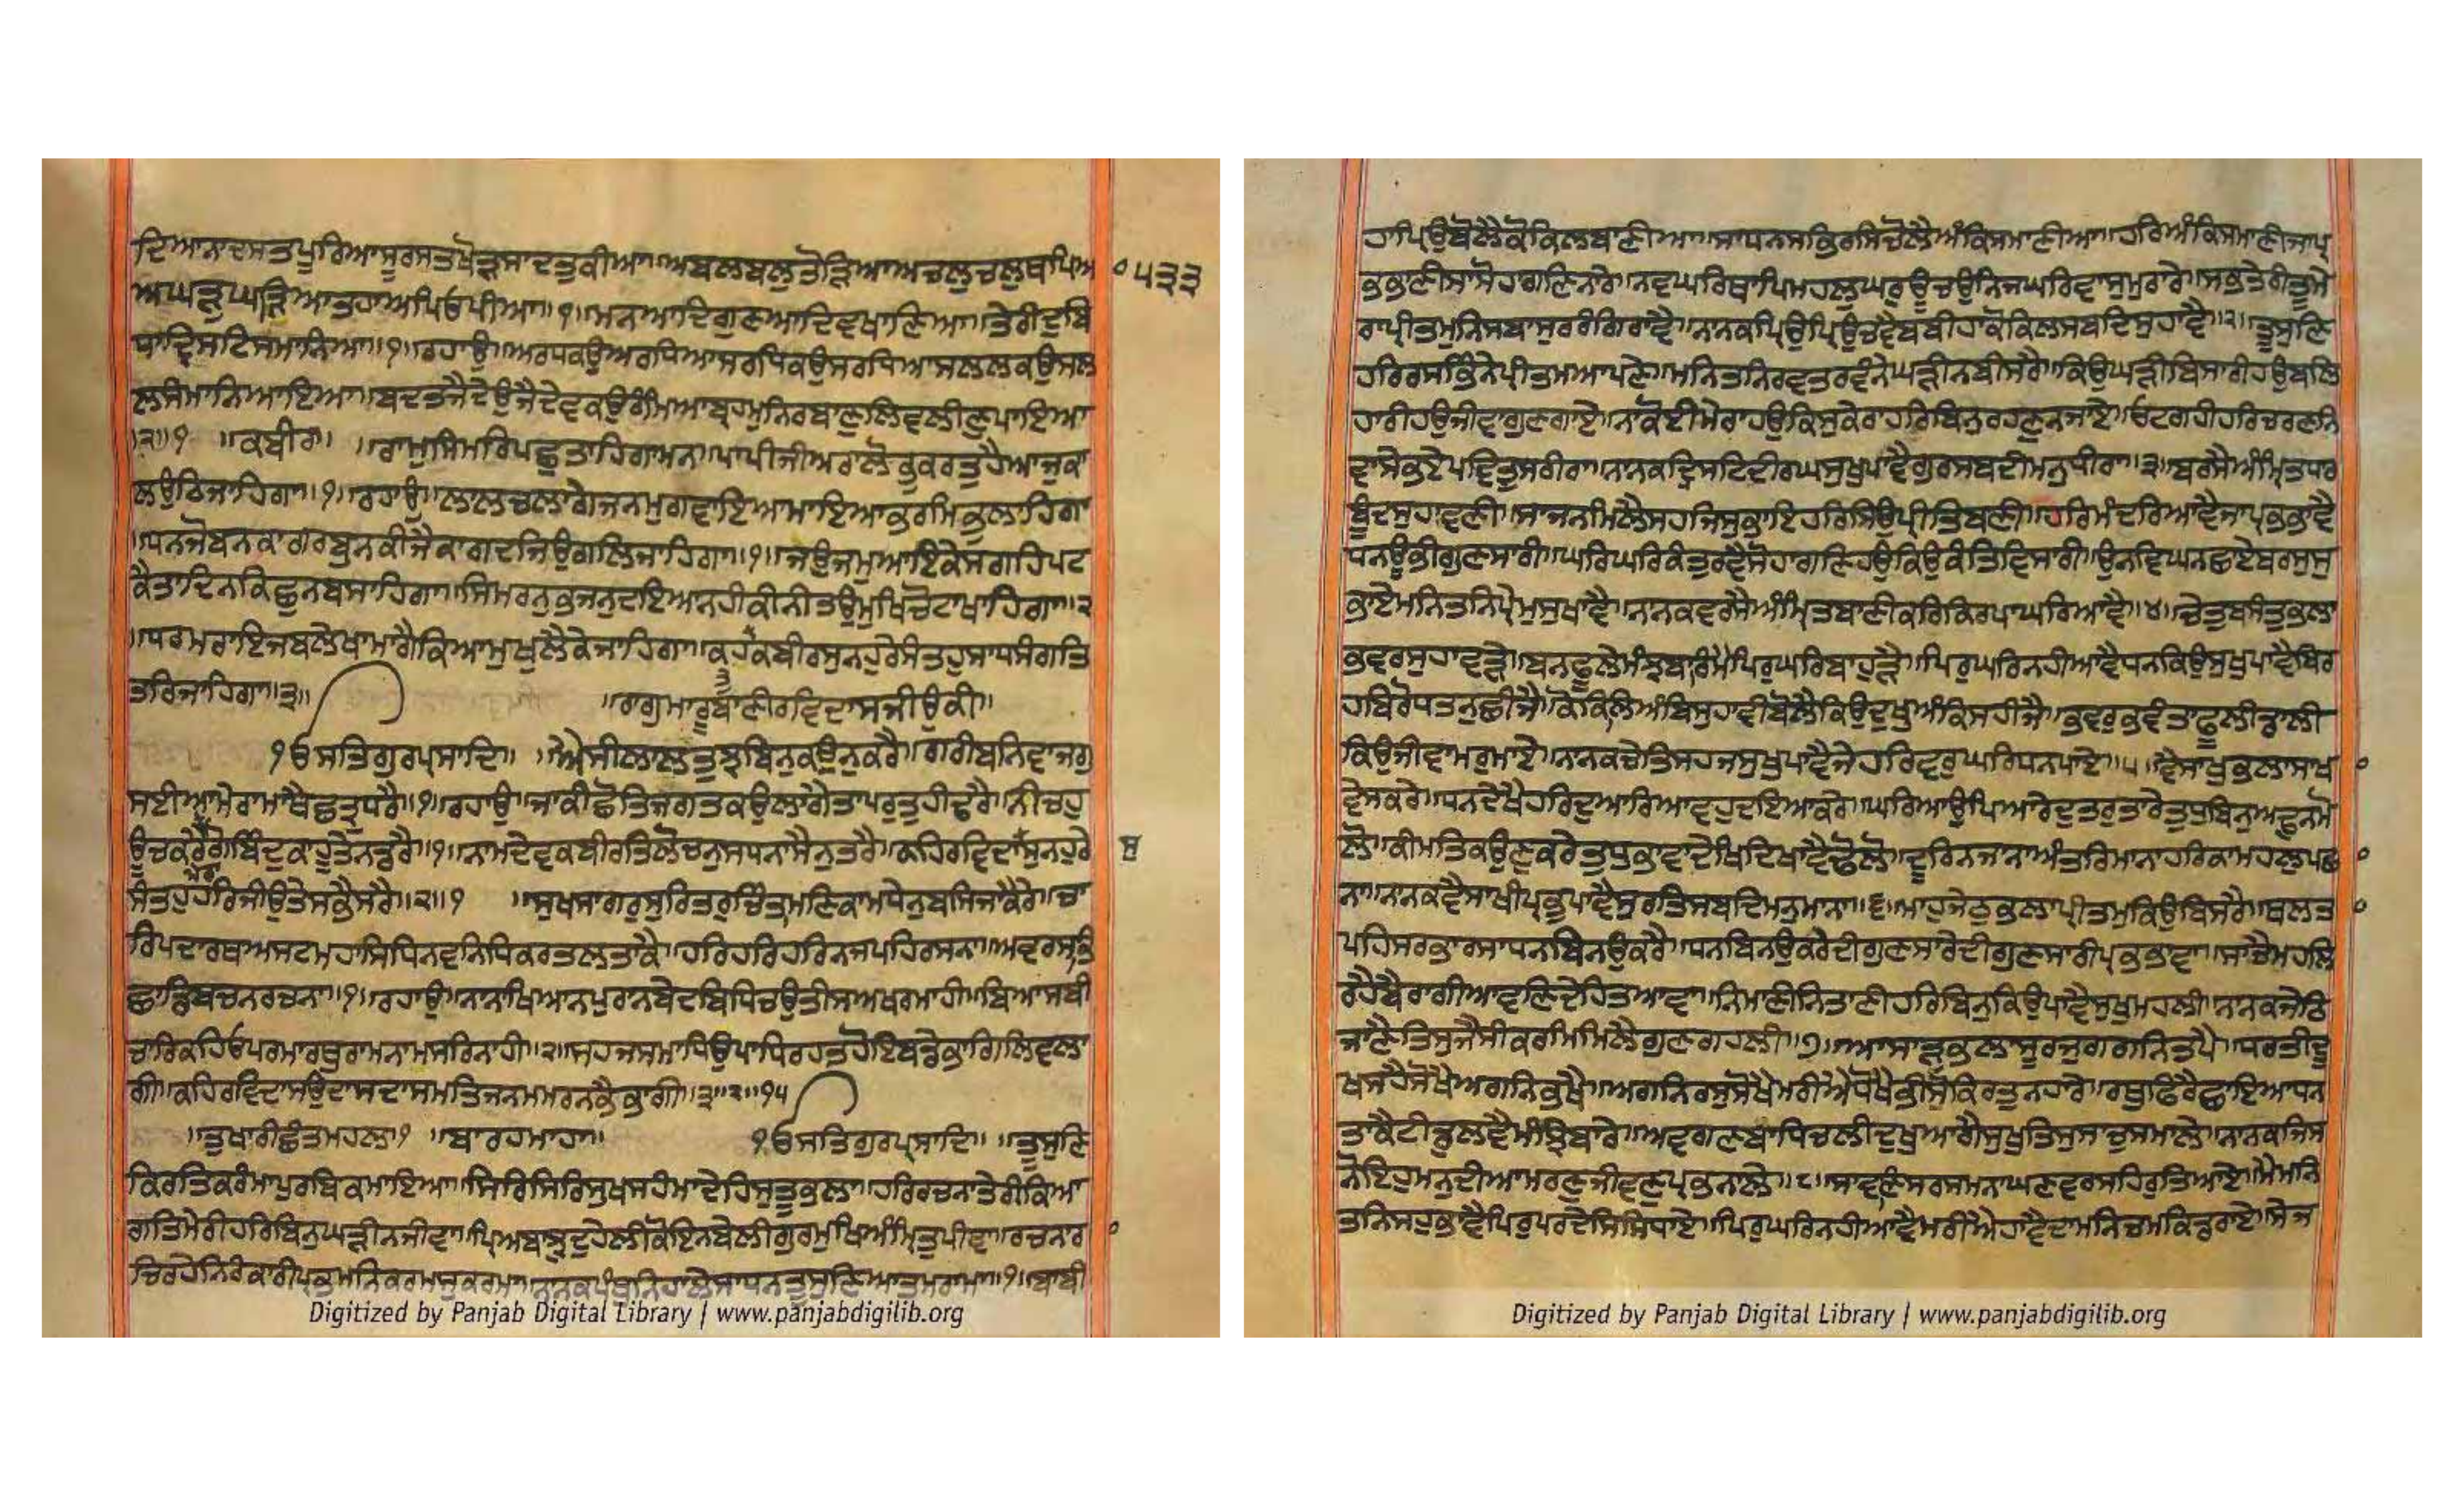 ਦਿਆਨਾਦਸਤਪੂਰਿਆਸੂਰਸਤਖੋੜਸਾਦਤੁਕੀਆ॥ਅਬਲਬਲੁਤੋੜਿਆਅਚਲੁਚਲੁਥਪਿਆ
ਅਘੜੁਘੜਿਆਤਹਾਅਪਿਓਪੀਆ॥੧॥ਮਨਆਦਿਗੁਣਆਦਿਵਖਾਣਿਆ॥ਤੇਰੀਦੁਬਿ
ਧਾਦ੍ਰਿਸਟਿਸਮਾਨਿਆ॥੧॥ਰਹਾਉ॥ਅਰਧਕਉਅਰਧਿਆਸਰਧਿਕਉਸਰਧਿਆਸਲਲਕਉਸਲ
ਲਸੰਮਾਨਿਆਇਆ॥ਬਦਤਜੈਦੇਉਜੈਦੇਵਕਉਰੰਮਿਆਬ੍ਰਹਮੁਨਿਰਬਾਣੁਲਿਵਲੀਣੁਪਾਇਆ
॥੨॥੧ ॥ਕਬੀਰ॥ ॥ਰਾਮੁਸਿਮਰਿਪਛੁਤਾਹਿਗਾਮਨ॥ਪਾਪੀਜੀਅਰਾਲੋਭੁਕਰਤੁਹੈਆਜੁਕਾ
ਲਉਠਿਜਾਹਿਗਾ॥੧॥ਰਹਾਉ॥ਲਾਲਚਲਾਗੇਜਨਮੁਗਵਾਇਆਮਾਇਆਭਰਮਿਭੁਲਾਹਿਗਾ
॥ਧਨਜੋਬਨਕਾਗਰਬੁਨਕੀਜੈਕਾਗਦਜਿਉਗਲਿਜਾਹਿਗਾ॥੧॥ਜਉਜਮੁਆਇਕੇਸਗਹਿਪਟ
ਕੈਤਾਦਿਨਕਿਛੁਨਬਸਾਹਿਗਾ॥ਸਿਮਰਨੁਭਜਨੁਦਇਆਨਹੀਕੀਨੀਤਉਮੁਖਿਚੋਟਾਖਾਹਿਗਾ॥੨
॥ਧਰਮਰਾਇਜਬਲੇਖਾਮਾਗੈਕਿਆਮੁਖੁਲੈਕੇਜਾਹਿਗਾ॥ਕਹੈਕਬੀਰਸੁਨਹੁਰੇਸੰਤਹੁਸਾਧਸੰਗਤਿ
ਤਰਿਜਾਹਿਗਾ॥੩॥ ॥ਰਾਗੁਮਾਰੂਬਾਣੀਰਵਿਦਾਸਜੀਉਕੀ॥
੧ਓਸਤਿਗੁਰਪ੍ਰਸਾਦਿ॥ ॥ਐਸੀਲਾਲਤੁਝਬਿਨੁਕਉਨੁਕਰੈ॥ਗਰੀਬਨਿਵਾਜਗੁ
ਸਈਆਮੇਰਾਮਾਥੈਛਤ੍ਰੁਧਰੈ॥੧॥ਰਹਾਉ॥ਜਾਕੀਛੋਤਿਜਗਤਕਉਲਾਗੈਤਾਪਰਤੁਹੀਢਰੈ॥ਨੀਚਹੁ
ਊਚਕਰੈਗੋਬਿੰਦੁਕਾਹੂਤੇਨਡਰੈ॥੧॥ਨਾਮਦੇਵਕਬੀਰਤਿਲੋਚਨੁਸਧਨਾਸੈਨੁਤਰੈ॥ਕਹਿਰਵਿਦਾਸੁਨਹੁਰੇ
ਸੰਤਹੁਹਰਿਜੀਉਤੇਸਭੈਸਰੈ॥੨॥੧ ॥ਸੁਖਸਾਗਰੁਸੁਰਿਤਰੁਚਿੰਤਾਮਣਿਕਾਮਧੇਨੁਬਸਿਜਾਕੈਰੇ॥ਚਾ
ਰਿਪਦਾਰਥਅਸਟਮਹਾਸਿਧਿਨਵਨਿਧਿਕਰਤਲਤਾਕੈ॥ਹਰਿਹਰਿਹਰਿਨਜਪਹਿਰਸਨਾ॥ਅਵਰਸਭਿ
ਛਾਡਿਬਚਨਰਚਨਾ॥੧॥ਰਹਾਉ॥ਨਾਨਾਖਿਆਨਪੁਰਾਨਬੇਦਬਿਧਿਚਉਤੀਸਅਖਰਮਾਹੀ॥ਬਿਆਸਬੀ
ਚਾਰਿਕਹਿਓਪਰਮਾਰਥੁਰਾਮਨਾਮਸਰਿਨਾਹੀ॥੨॥ਸਹਜਸਮਾਧਿਉਪਾਧਿਰਹਤਹੋਇਬਡੇਭਾਗਿਲਿਵਲਾ
ਗੀ॥ਕਹਿਰਵਿਦਾਸਉਦਾਸਦਾਸਮਤਿਜਨਮਮਰਨਭੈਭਾਗੀ॥੩॥੨॥੧੫
॥ਤੁਖਾਰੀਛੰਤਮਹਲਾ੧ ॥ਬਾਰਹਮਾਹਾ॥ ੧ਓਸਤਿਗੁਰਪ੍ਰਸਾਦਿ॥ ॥ਤੂਸੁਣਿ
ਕਿਰਤਿਕਰੰਮਾਪੁਰਬਿਕਮਾਇਆ॥ਸਿਰਿਸਿਰਿਸੁਖਸਹੰਮਾਦੇਹਿਸੁਤੂਭਲਾ॥ਹਰਿਰਚਨਾਤੇਰੀਕਿਆ
ਗਤਿਮੇਰੀਹਰਿਬਿਨੁਘੜੀਨਜੀਵਾ॥ਪ੍ਰਿਅਬਾਝੁਦੁਹੇਲੀਕੋਇਨਬੇਲੀਗੁਰਮੁਖਿਅੰਮ੍ਰਿਤੁਪੀਵਾ॥ਰਚਨਾਰ
ਚਿਰਹੇਨਿਰੰਕਾਰੀਪ੍ਰਭਮਨਿਕਰਮਸੁਕਰਮਾ॥ਨਾਨਕਪੰਥੁਨਿਹਾਲੇਸਾਧਨਤੂਸੁਣਿਆਤਮਰਾਮਾ॥੧॥ਬਾਬੀ
੦੫੩੩
Digitized by Panjab Digital Library | www.panjabdigilib.org
ਹਾਪ੍ਰਿਉਬੋਲੈਕੋਕਿਲਬਾਣੀਆ॥ਸਾਧਨਸਭਿਰਸਿਚੋਲੈਅੰਕਿਸਮਾਣੀਆ॥ਹਰਿਅੰਕਿਸਮਾਣੀਜਾਪ੍ਰ
ਭਭਾਣੀਸਾਸੋਹਾਗਣਿਨਾਰੇ॥ਨਵਘਰਿਥਾਪਿਮਹਲੁਘਰੁਊਚਉਨਿਜਘਰਿਵਾਸੁਮੁਰਾਰੇ॥ਸਭਤੇਰੀਤੂਮੇ
ਰਾਪ੍ਰੀਤਮੁਨਿਸਬਾਸੁਰਰੰਗਿਰਾਵੈ॥ਨਾਨਕਪ੍ਰਿਉਪ੍ਰਿਉਚਵੈਬਬੀਹਾਕੋਕਿਲਸਬਦਿਸੁਹਾਵੈ॥੨॥ਤੂਸੁਣਿ
ਹਰਿਰਸਭਿੰਨੇਪ੍ਰੀਤਮਆਪਣੇ॥ਮਨਿਤਨਿਰਵਤਰਵੰਨੇਘੜੀਨਬੀਸਰੈ॥ਕਿਉਘੜੀਬਿਸਾਰੀਹਉਬਲਿ
ਹਾਰੀਹਉਜੀਵਾਗੁਣਗਾਏ॥ਨਾਕੋਈਮੇਰਾਹਉਕਿਸੁਕੇਰਾਹਰਿਬਿਨੁਰਹਣੁਨਜਾਏ॥ਓਟਗਹੀਹਰਿਚਰਣਨਿ
ਵਾਸੇਭਏਪਵਿਤ੍ਰਸਰੀਰਾ॥ਨਾਨਕਦ੍ਰਿਸਟਿਦੀਰਘਸੁਖੁਪਾਵੈਗੁਰਸਬਦੀਮਨੁਧੀਰਾ॥੩॥ਬਰਸੈਅੰਮ੍ਰਿਤਧਾਰ
ਬੂੰਦਸੁਹਾਵਣੀ॥ਸਾਜਨਮਿਲੈਸਹਜਿਸੁਭਾਇਹਰਿਸਿਉਪ੍ਰੀਤਿਬਣੀ॥ਹਰਿਮੰਦਰਿਆਵੈਜਾਪ੍ਰਭਭਾਵੈ
ਧਨਊਭੀਗੁਣਸਾਰੀ॥ਘਰਿਘਰਿਕੰਤੁਰਵੈਸੋਹਾਗਣਿਹਉਕਿਉਕੰਤਿਵਿਸਾਰੀ॥ਉਨਵਿਘਨਛਾਏਬਰਸੁਸੁ
ਭਾਏਮਨਿਤਨਿਪ੍ਰੇਮੁਸੁਖਾਵੈ॥ਨਾਨਕਵਰਸੈਅੰਮ੍ਰਿਤਬਾਣੀਕਰਿਕਿਰਪਾਘਰਿਆਵੈ॥੪॥ਚੇਤੁਬਸੰਤੁਭਲਾ
ਭਵਰਸੁਹਾਵੜੇ॥ਬਨਫੂਲੇਮੰਝਬਾਰਿਮੈਪਿਰੁਘਰਿਬਾਹੁੜੈ॥ਪਿਰੁਘਰਿਨਹੀਆਵੈਧਨਕਿਉਸੁਖੁਪਾਵੈਬਿਰ
ਹਬਿਰੋਧਤਨੁਛੀਜੈ॥ਕੋਕਿਲਅੰਬਿਸੁਹਾਵੀਬੋਲੈਕਿਉਦੁਖੁਅੰਕਿਸਹੀਜੈ॥ਭਵਰੁਭਵੰਤਾਫੂਲੀਡਾਲੀ
ਕਿਉਜੀਵਾਮਰੁਮਾਏ॥ਨਾਨਕਚੇਤਿਸਹਜਸੁਖੁਪਾਵੈਜੇਹਰਿਵਰੁਘਰਿਧਨਪਾਏ॥੫॥ਵੈਸਾਖੁਭਲਾਸਾਖ
ਵੇਸਕਰੇ॥ਧਨਦੇਖੈਹਰਿਦੁਆਰਿਆਵਹੁਦਇਆਕਰੇ॥ਘਰਿਆਉਪਿਆਰੇਦੁਤਰੁਤਾਰੇਤੁਧੁਬਿਨੁਅਢੁਨਮੋ
ਲੋ॥ਕੀਮਤਿਕਉਣਕਰੇਤੁਧੁਭਾਵਾਦੇਖਿਦਿਖਾਵੈਢੋਲੋ॥ਦੂਰਿਨਜਾਨਾਅੰਤਰਿਮਾਨਾਹਰਿਕਾਮਹਲੁਪਛਾ
ਨਾ॥ਨਾਨਕਵੈਸਾਖੀਪ੍ਰਭੁਪਾਵੈਸੁਰਤਿਸਬਦਿਮਨੁਮਾਨਾ॥੬॥ਮਾਹੁਜੇਠੁਭਲਾਪ੍ਰੀਤਮੁਕਿਉਬਿਸਰੈ॥ਥਲਤਾ
ਪਹਿਸਰਭਾਰਸਾਧਨਬਿਨਉਕਰੈ॥ਧਨਬਿਨਉਕਰੇਦੀਗੁਣਸਾਰੇਦੀਗੁਣਸਾਰੀਪ੍ਰਭਭਾਵਾ॥ਸਾਚੈਮਹਲਿ
ਰਹੈਬੈਰਾਗੀਆਵਣਿਦੇਹਿਤਆਵਾ॥ਨਿਮਾਣੀਨਿਤਾਣੀਹਰਿਬਿਨੁਕਿਉਪਾਵੈਸੁਖਮਹਲੀ॥ਨਾਨਕਜੇਠਿ
ਜਾਣੈਤਿਸੁਜੈਸੀਕਰਮਿਮਿਲੈਗੁਣਗਹਲੀ॥੭॥ਆਸਾੜੁਭਲਾਸੂਰਜੁਗਗਨਿਤਪੈ॥ਧਰਤੀਦੂ
ਖਸਹੈਸੋਖੈਅਗਨਿਭਖੈ॥ਅਗਨਿਰਸੁਸੋਖੈਮਰੀਐਧੋਖੈਭੀਸੋਕਿਰਤੁਨਹਾਰੇ॥ਰਥੁਫਿਰੈਛਾਇਆਧਨ
ਤਾਕੈਟੀਡੁਲਵੈਮੰਝਿਬਾਰੇ॥ਅਵਗਣਬਾਧਿਚਲੀਦੁਖੁਆਗੈਸੁਖੁਤਿਸੁਸਾਚੁਸਮਾਲੇ॥ਨਾਨਕਜਿਸ
ਨੋਇਹੁਮਨੁਦੀਆਮਰਣੁਜੀਵਣੁਪ੍ਰਭਨਾਲੇ॥੮॥ਸਾਵਣਿਸਰਸਮਨਾਘਣਵਰਸਹਿਰੁਤਿਆਏ॥ਮੈਮਨਿ
ਤਨਿਸਹੁਭਾਵੈਪਿਰੁਪਰਦੇਸਿਸਿਧਾਏ॥ਪਿਰੁਘਰਿਨਹੀਆਵੈਮਰੀਐਹਾਵੈਦਾਮਨਿਚਮਕਿਡਰਾਏ॥ਸੇਜ
Digitized by Panjab Digital Library | www.panjabdigilib.org